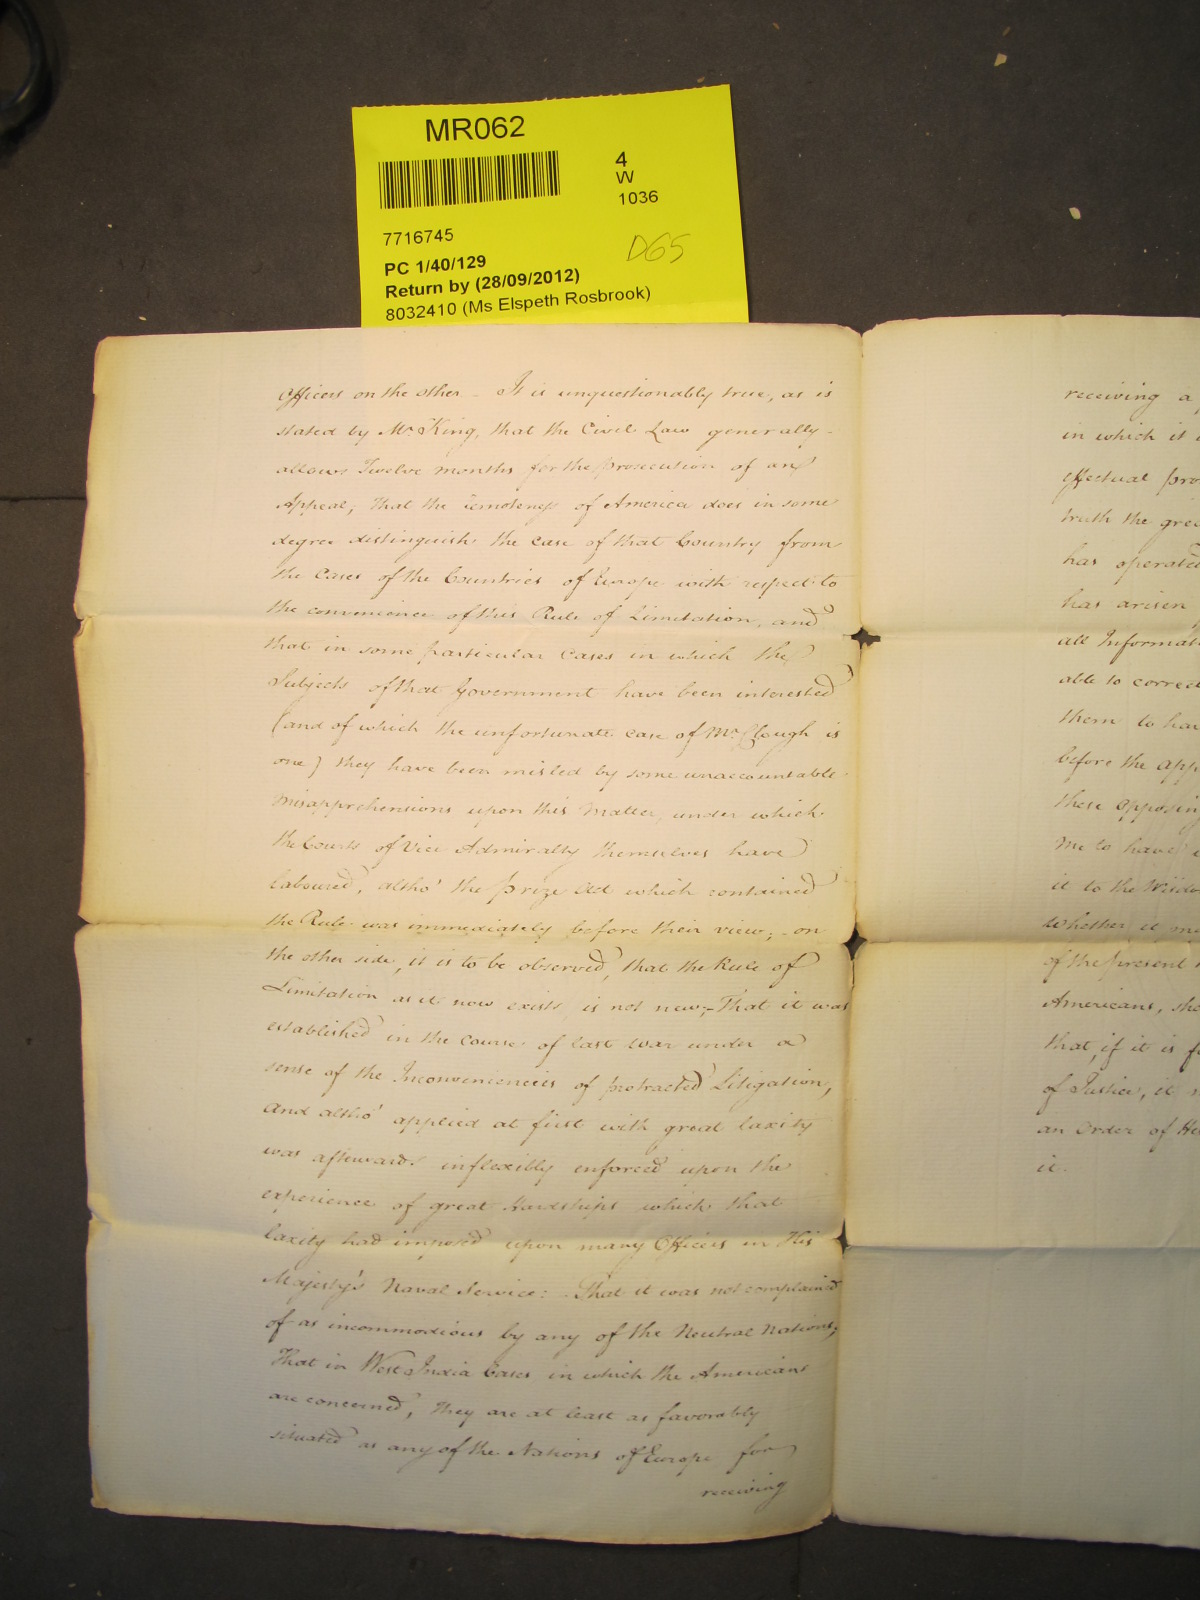 MR062
4
W
1036
7716745
D65
PC 1/40/129
Return by (28/09/2012)
8032410 (Ms Elspeth Rosbrook)
Officers on the other - It is unquestionably true, as is
stated by Mr. King, that the Civil Law generally -
allows Twelve months for the prosecution of an
Appeal; that the remoteness of America does in some
degree distinguish the case of that Country from
the Cases of the Countries of Europe with respect to
the convenience of this Rule of Limitation, and
that in some particular Cases in which the
Subjects of that Government have been interested
(and of which the unfortunate case of Mr. Clough is
one) they have been misled by some unaccountable
misapprehensions upon this Matter, under which
the Courts of Vice Admiralty themselves have
laboured, altho' the Prize Act which contained
the Rule was immediately before their view; - on
the other side, it is to be observed, that the Rule of
Limitation as it now exists, is not new; - That it was
established in the Course of last War under a
sense of the Inconveniencies of protracted Litigation,
and altho' applied at first with great laxity
was afterwards inflexibly enforced upon the
experience of great Hardships which that
laxity had imposed upon many Officers in His
Majesty's Naval Service: - That it was not complained
of as incommodious by any of the Neutral Nations;
That in West India Cases in which the Americans
are concerned, they are at least as favorably
situated as any of the Nations of Europe for
receiving
receiving a
in which it
effectual
truth the
has operated
has arisen
all
able to correct
them to
before the
these opposing
me to have
it to the
Whether it
of the present
Americans,
that, if it is
of Justice, it
an Order of
it.